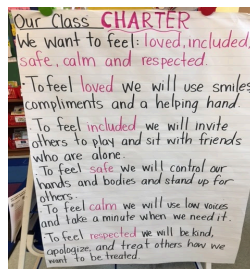 Our Class CHARTER
We want to feel: loved, included,
safe, calm and respected.
. To feel loved we will use smiles,
compliments and a helping hand.
. To feel included we will invite
others to play and sit with friends
who are alone.
. To feel safe we will control our
hands and bodies and stand up for
others.
. To feel calm we will use low voices
and take a minute when we need it.
. To feel respected we will be kind,
apologize, and treat others how we
want to be treated.